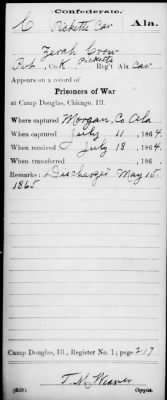 Confederate.
C Picketts Cav Ala.
Zerah Crow
Pvt, Co. K Picketts Reg't Ala Cav
Appears on a record of
Prisoners of War
at Camp Douglas, Chicago, Ill.
Where captured Morgan Co Ala
When captured July 11, 1864
When received July 18, 1864
When transferred , 186 .
Remarks: Discharged May 15
1865
Camp Douglas, Ill., Register No. 1; page 217
T. M. Weaver
Copyist.